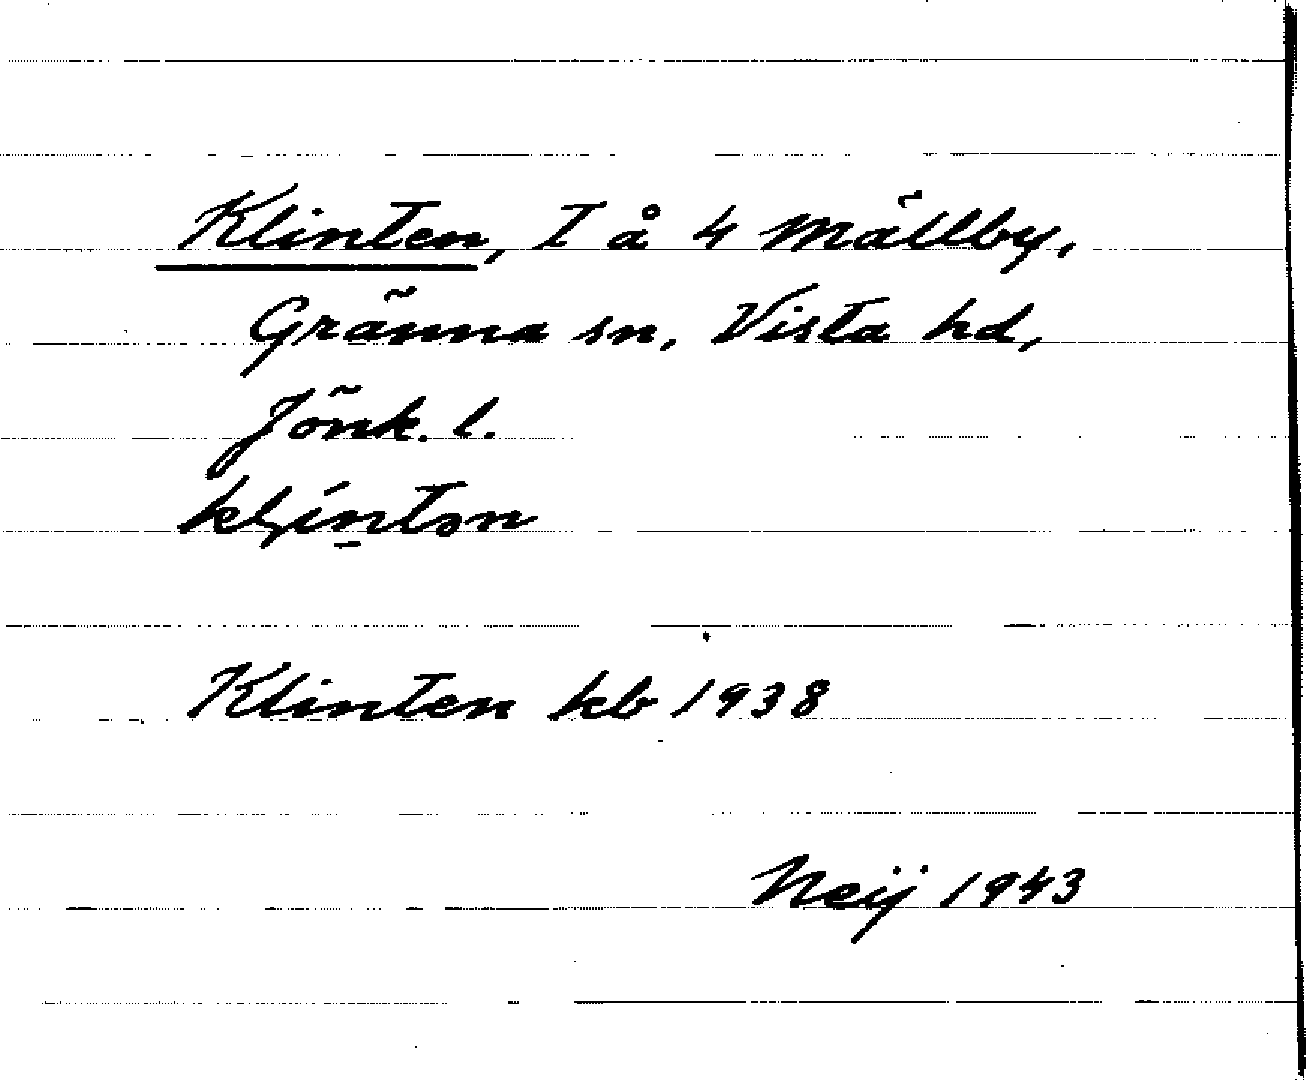 Klinten, T å 4 Mällby,
Gränna sn, Vista hd,
Jönk. l.
Klinten kb 1938
Neij 1943